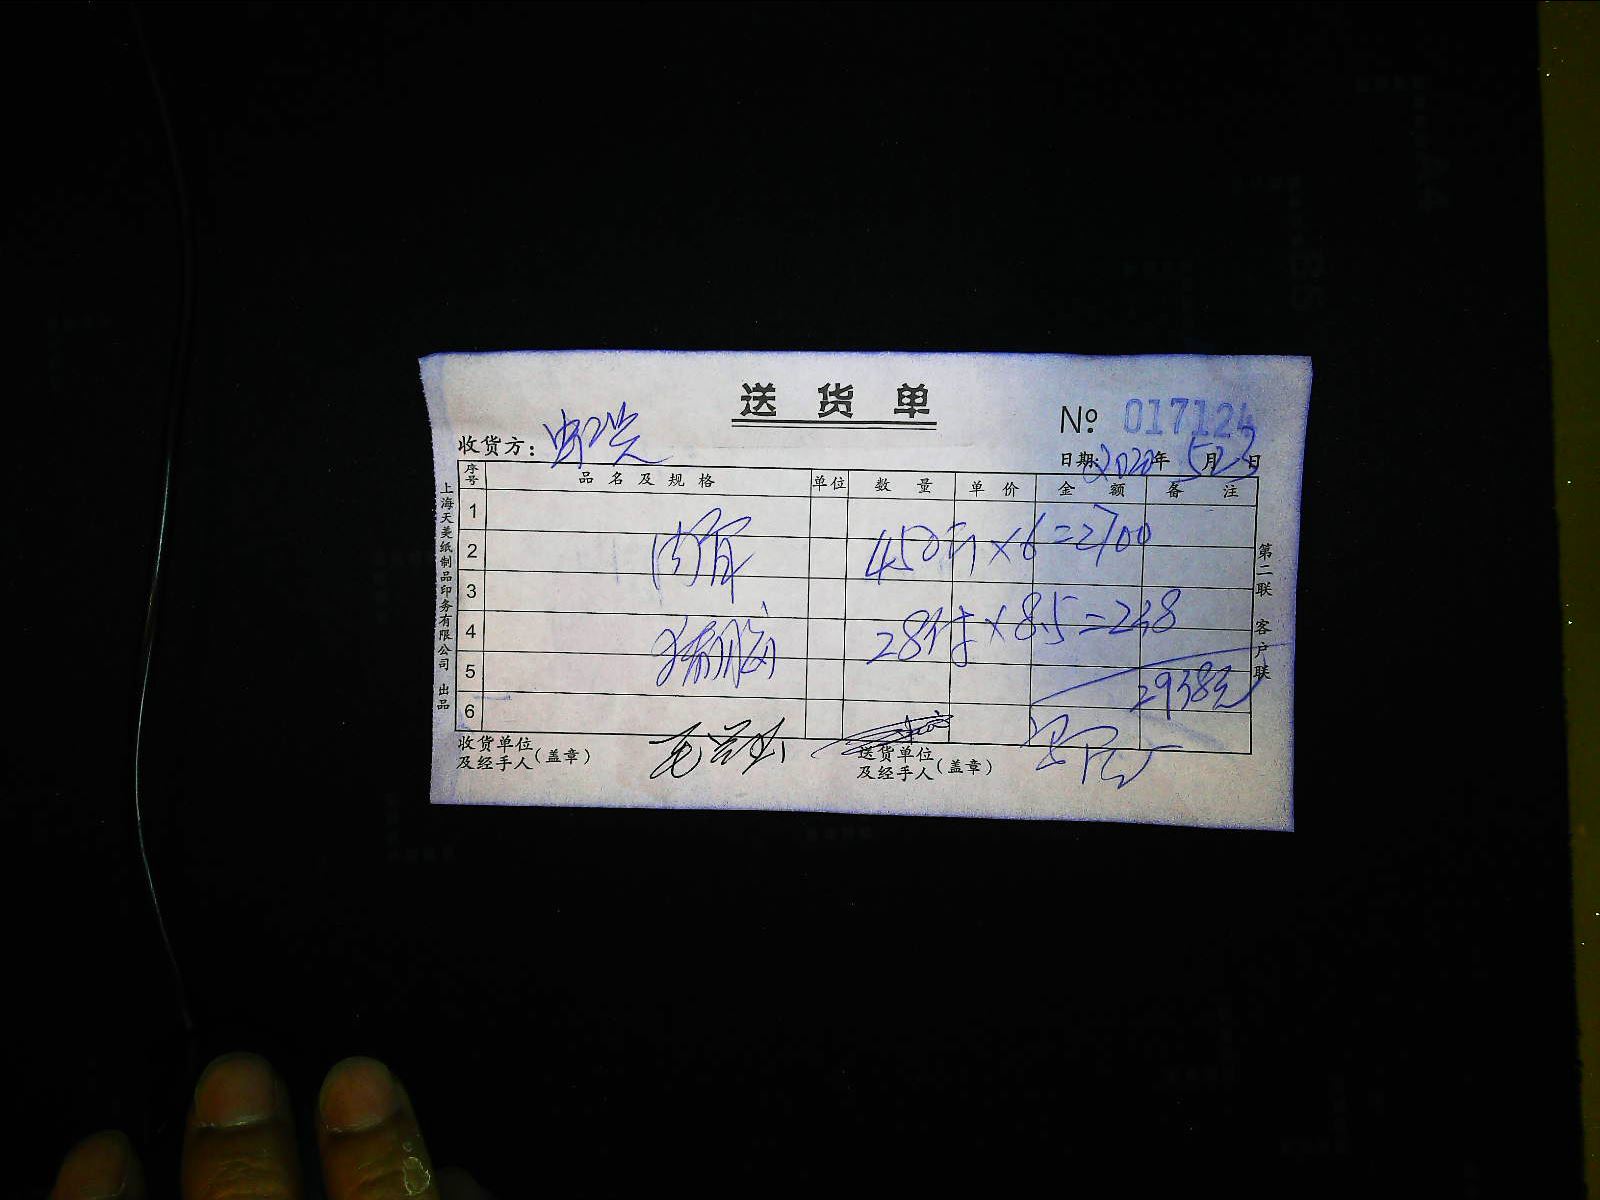 送货单
№ 017124
收货方:
日期: 2020年 5月23日
序号 品名及规格 单位 数量 单价 金额 备注
1
2 450斤×6=2700
3
4 猪脑 28付×8.5=238
5 2938元
6
收货单位及经手人(盖章)
送货单位及经手人(盖章)
上海天美纸制品印务有限公司 出品
第二联 客户联